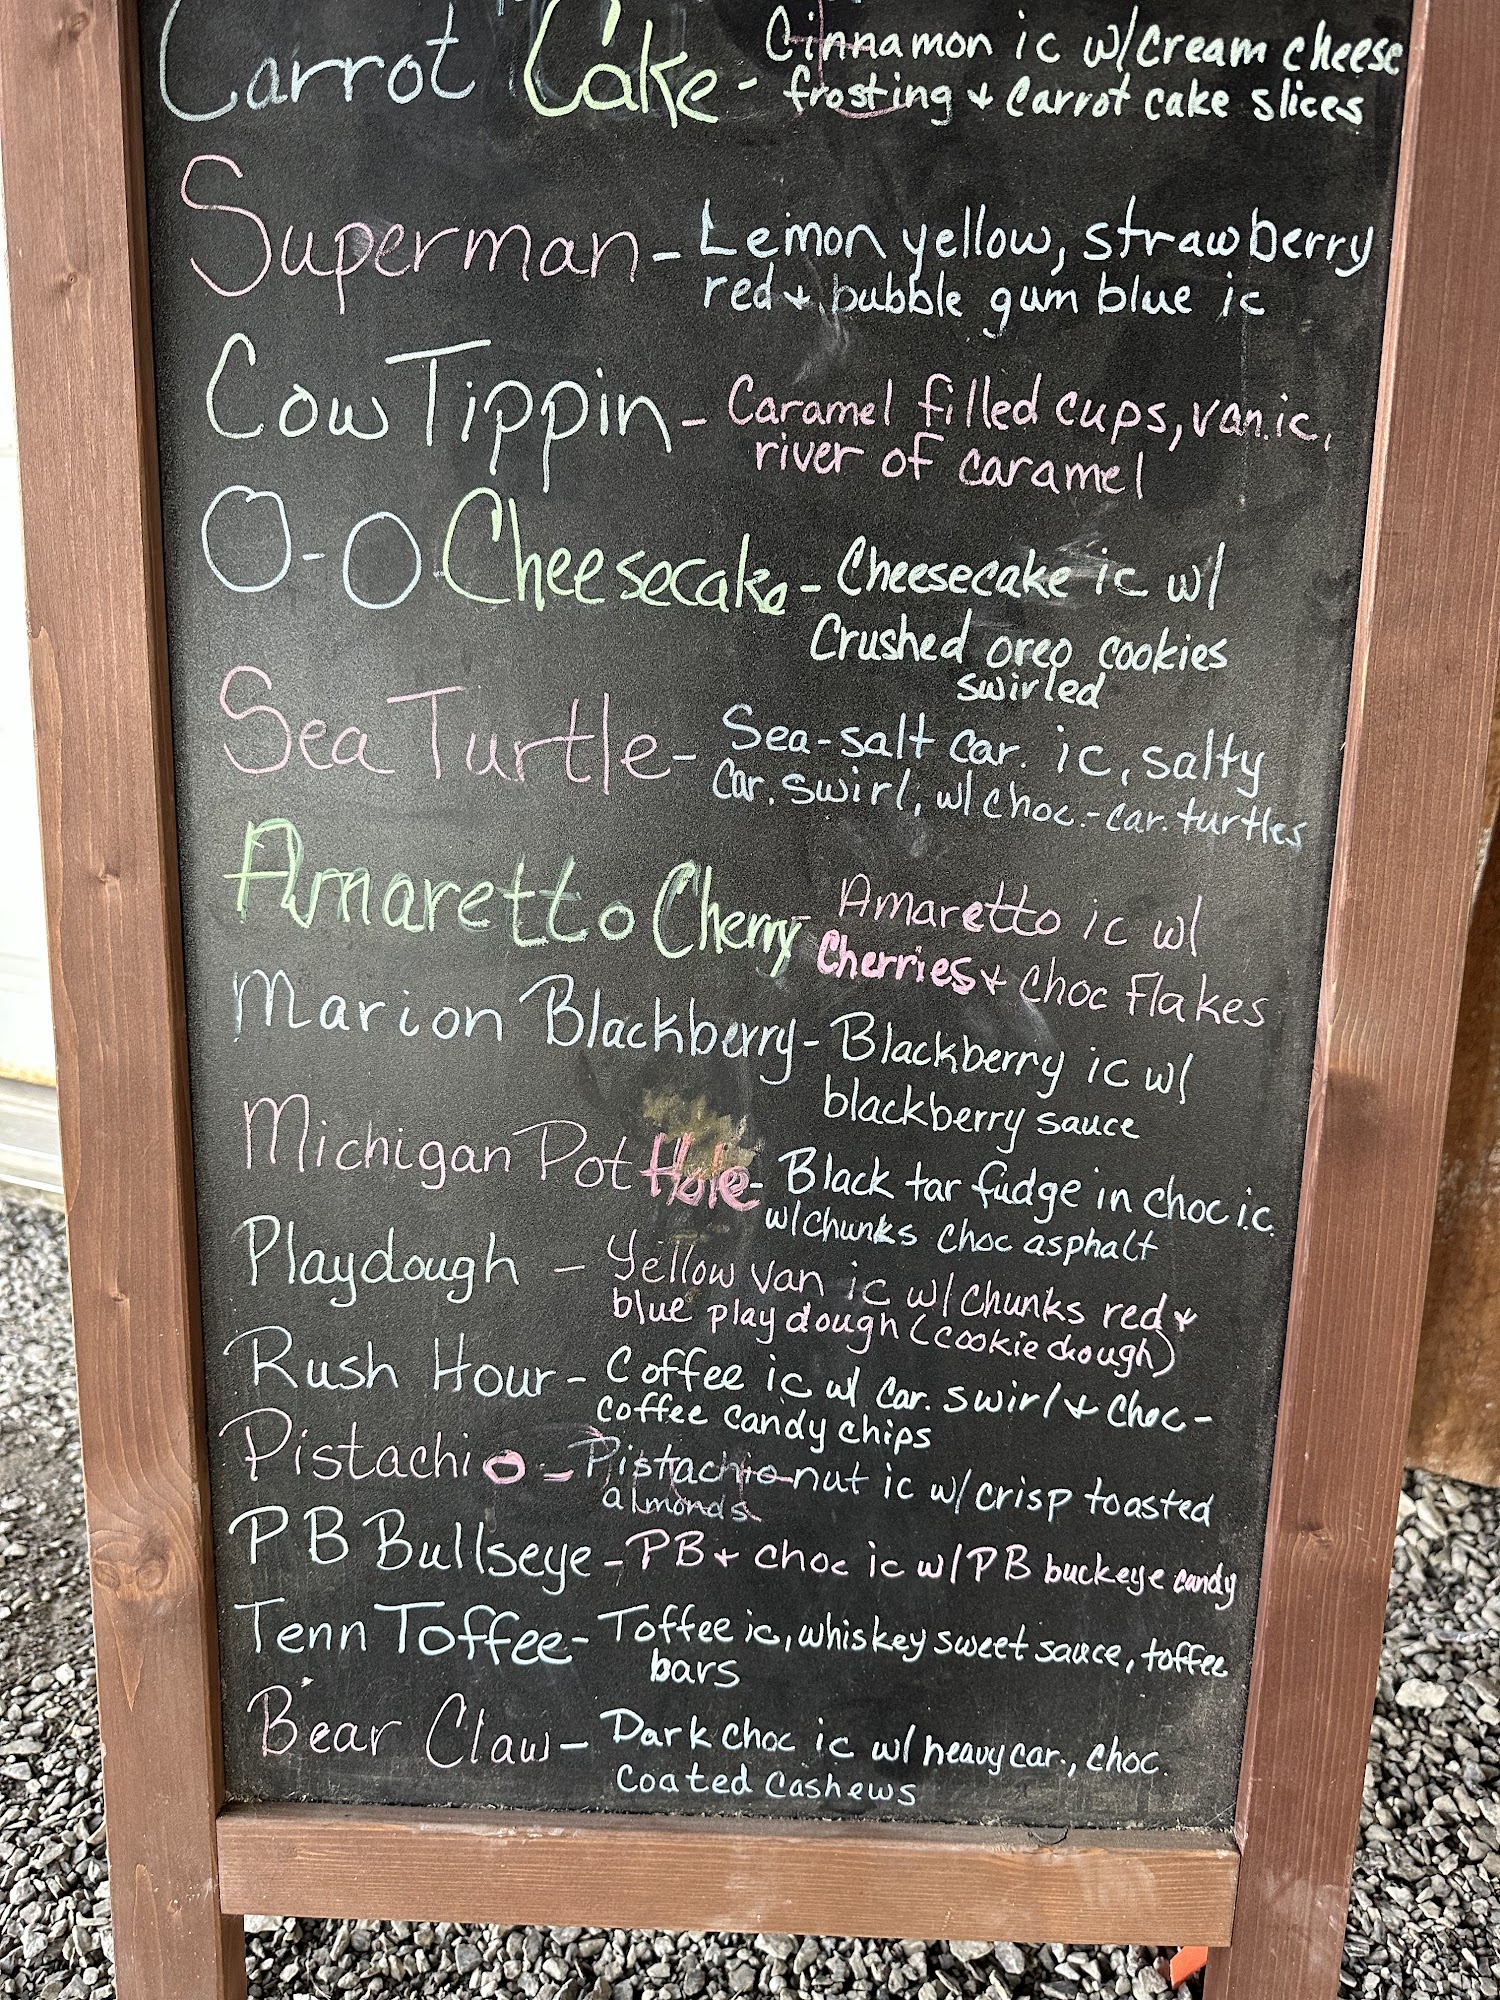 Carrot Cake - Cinnamon ic w/cream cheese
frosting + carrot cake slices
Superman - Lemon yellow, strawberry
red + bubble gum blue ic
Cow Tippin - Caramel filled cups, van. ic,
river of caramel
O-O Cheesecake - Cheesecake ic w/
crushed oreo cookies
swirled
Sea Turtle - Sea-salt car. ic, salty
car. swirl, w/ choc.-car. turtles
Amaretto Cherry - Amaretto ic w/
Cherries + choc flakes
Marion Blackberry - Blackberry ic w/
blackberry sauce
Michigan Pot Hole - Black tar fudge in choc i.c.
w/chunks choc asphalt
Playdough - Yellow van ic w/chunks red +
blue play dough (cookie dough)
Rush Hour - Coffee ic w/ car. swirl + choc-
coffee candy chips
Pistachio - Pistachio nut ic w/crisp toasted
almonds
PB Bullseye - PB + choc ic w/PB buckeye candy
Tenn Toffee - Toffee ic, whiskey sweet sauce, toffee
bars
Bear Claw - Dark choc ic w/ heavy car., choc.
coated cashews